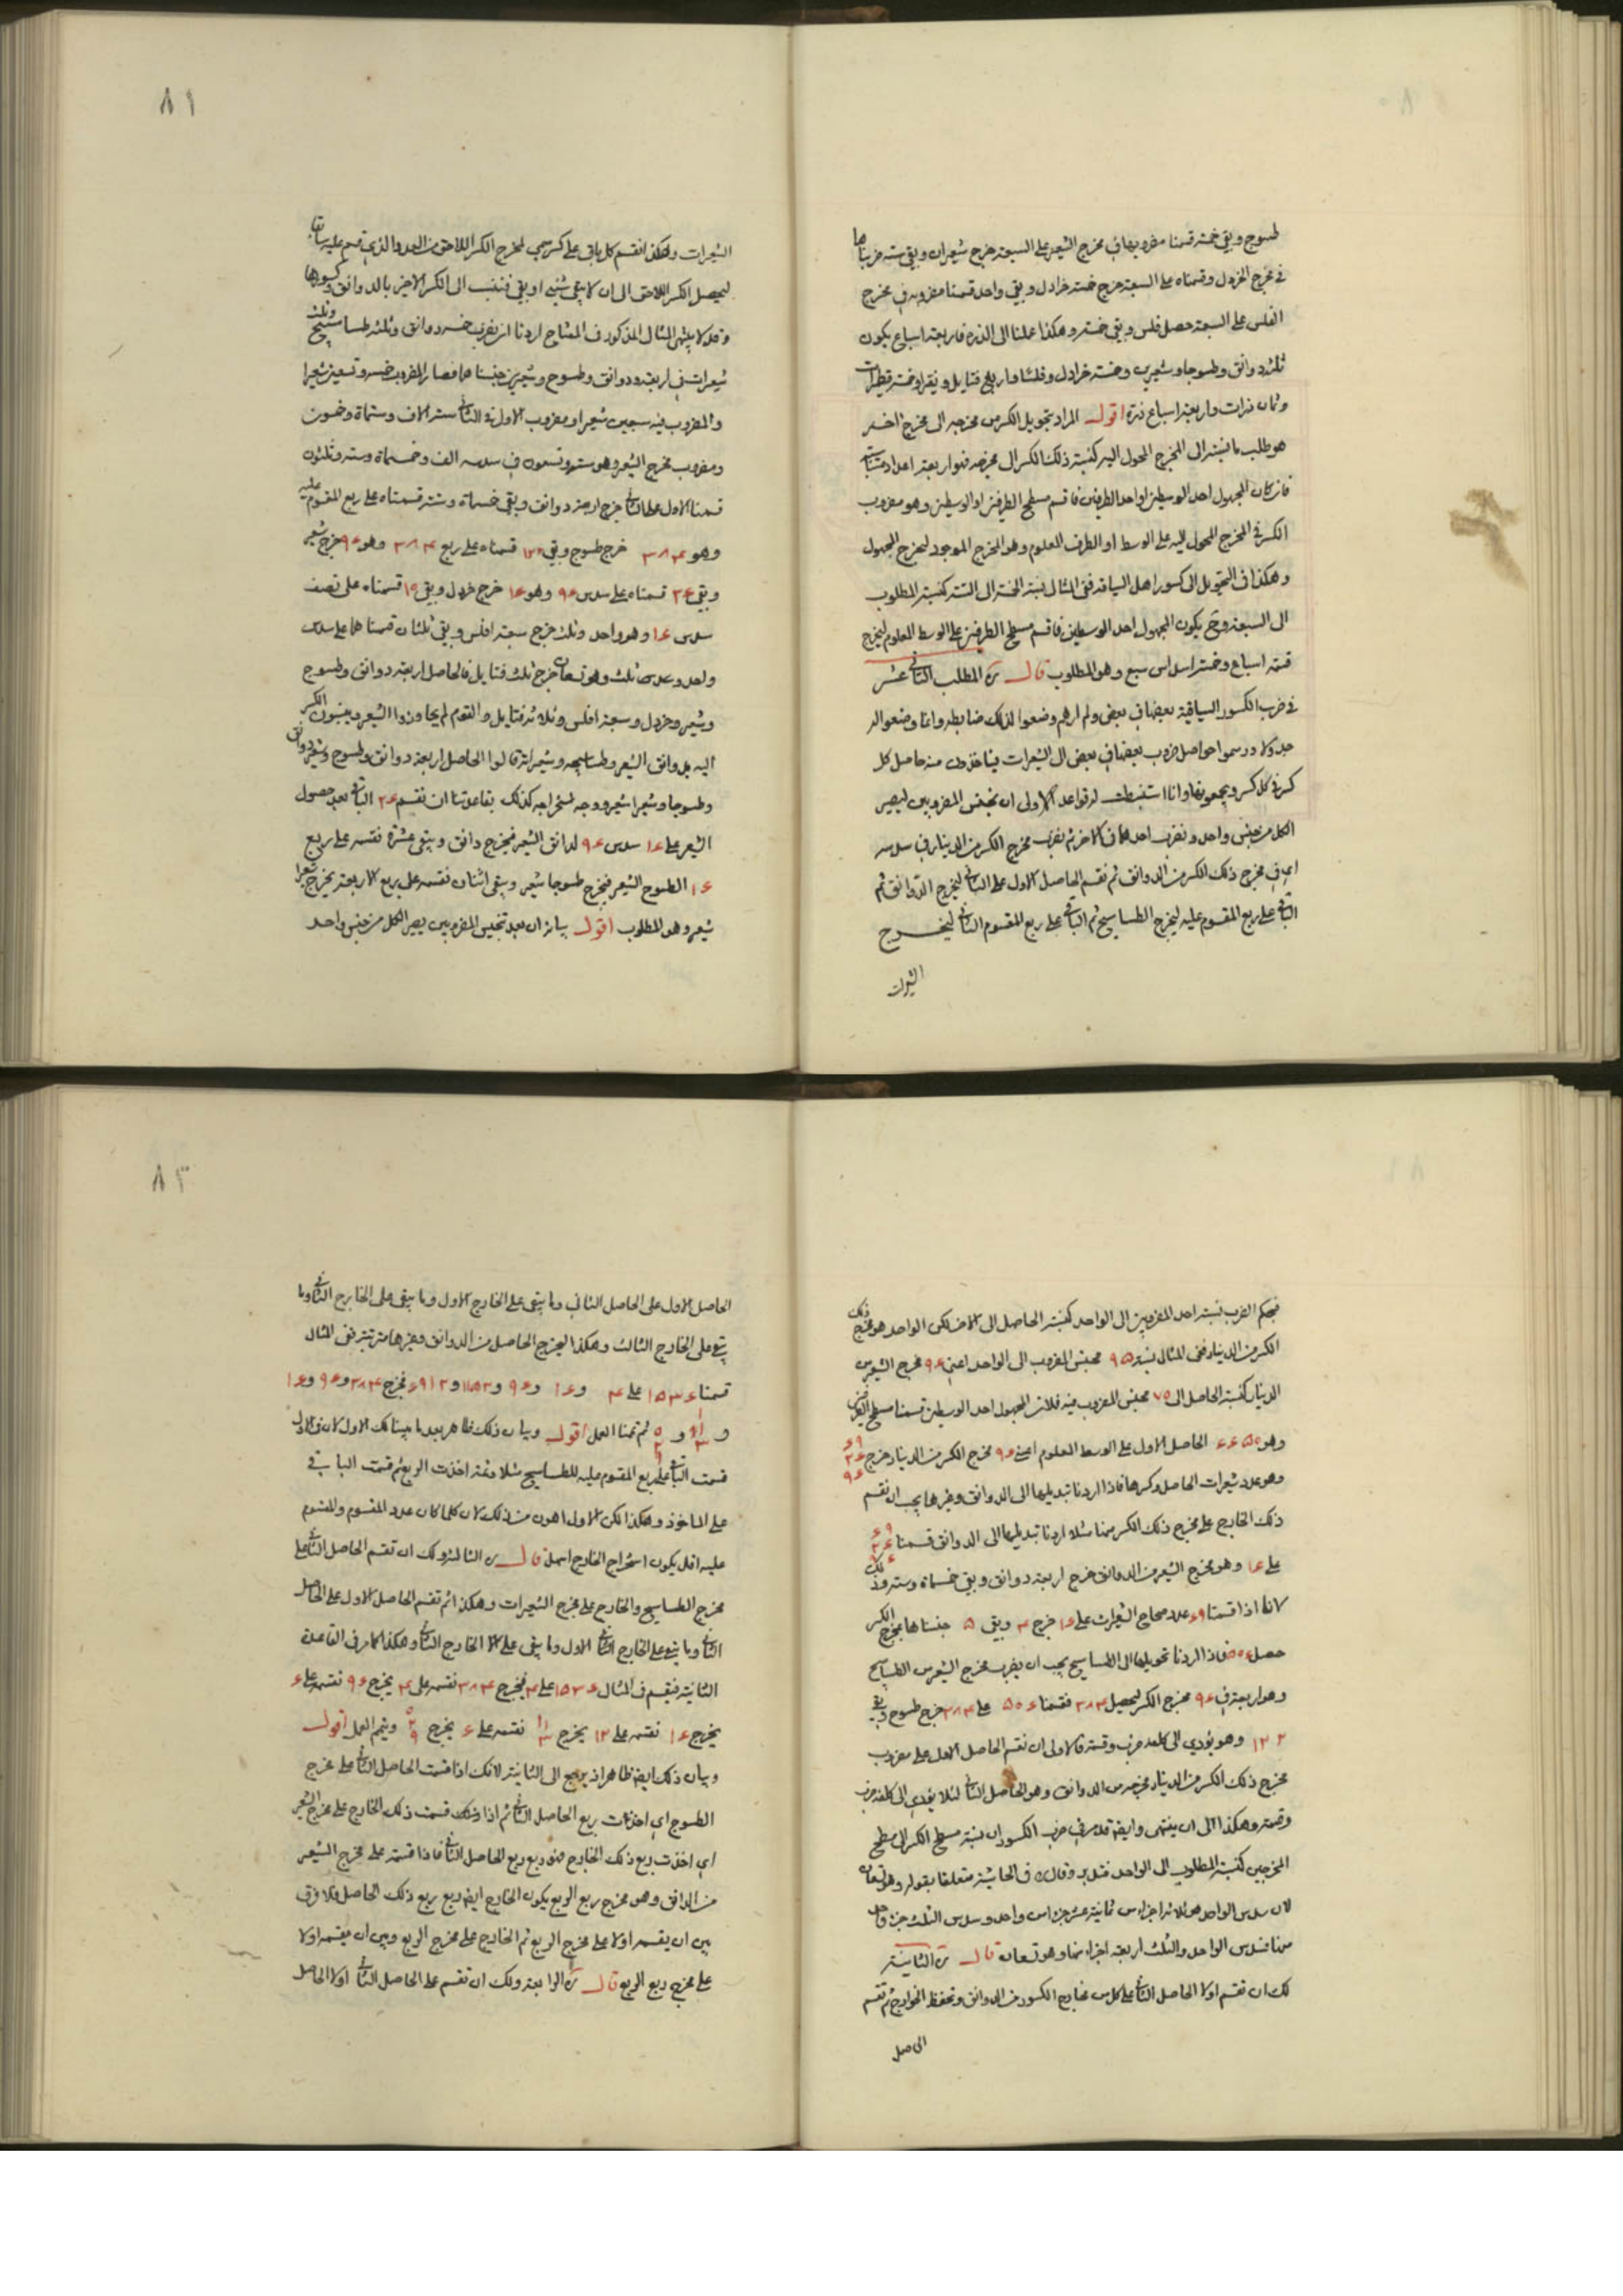 طسوج وبقى خمسة قسمنا مضروبها فى مخرج الشعير على السبعة خرج شعيران وبقى ستة ضربناها
فى مخرج الخردل وقسمناه على السبعة خرج خمسة خرادل وبقى واحد قسمنا مضروبه فى مخرج
الفلس على السبعة حصل فلس وبقى خمسة وهكذا عملنا الى الذرة فاربعة اسباع يكون
ثلثة دوانق وطسوجا وشعيرين وخمسة خرادل وفلسا واربع فتايل ونقيرا وخمسة قطميرات
وثمان ذرات واربعة اسباع ذرة اقول المراد بتحويل الكسر من مخرجه الى مخرج اخر
هو طلب ما نسبته الى المخرج المحول اليه كنسبة ذلك الكسر الى مخرجه فهو اربعة اعداد متناسبة
فان كان المجهول احد الوسطين او احد الطرفين فاقسم مسطح الطرفين او الوسطين وهو مضروب
الكسر فى المخرج المحول اليه على الوسط او الطرف المعلوم وهو المخرج الموجود ليخرج المجهول
وهكذا فى التحويل الى كسور اهل السياقة ففى المثال نسبة الخمسة الى الستة كنسبة المطلوب
الى السبعة وح يكون المجهول احد الوسطين فاقسم مسطح الطرفين على الوسط المعلوم ليخرج
خمسة اسباع وخمسة اسداس سبع وهو المطلوب قال المطلب الثانى عشر
فى ضرب الكسور السياقية بعضها فى بعض ولم ارهم وضعوا لذلك ضابطة وانما وضعوا له
جدولا ورسموا حواصل ضرب بعضها فى بعض الى الشعيرات فياخذون منه حاصل كل
كسر فى كل كسر ويجمعونها وانا استنبطت له قواعد الاولى ان نجنس المضروبين ليصير
الكل من جنس واحد ونضرب احدهما فى الاخر ثم نضرب مخرج الكسر من الدينار فى سدسه
اى فى مخرج ذلك الكسر من الدوانق ثم نقسم الحاصل الاول على الثانى ليخرج الدوانق ثم
الباقى على ربع المقسوم عليه ليخرج الطساسيج ثم الباقى على ربع المقسوم الثانى ليخرج
الشعيرات
٨١
الشعيرات وهكذا نقسم كل باق على كسر سمى لمخرج الكسر اللاحق من العدد الذى قسم عليه سابقا
ليحصل الكسر اللاحق الى ان لا يبقى شئ او بقى فننسب الى الكسر الاخير بالدوانق وكسورها
المثال المذكور فى المفتاح اردنا ان نضرب خمسة دوانق وثلثة طساسيج وثلث
شعيرات فى اربعة دوانق وطسوج وشعيرين جنسناهما فصار المضروب خمسة وتسعين شعيرا
والمضروب فيه سبعين شعيرا ومضروب الاول فى الثانى ستة الاف وستماة وخمسون
ومضروب مخرج الشعير وهو ستة وتسعون فى سدسه الف وخمسماة وستة وثلثون
قسمنا الاول على الثانى خرج اربعة دوانق وبقى خمسماة وستة قسمناه على ربع المقسوم عليه
وهو ٣٨۴ خرج طسوج وبقى ١٢٢ قسمناه على ربع ٣٨۴ وهو ٩۶ خرج شعير
وبقى ٢۶ قسمناه على سدس ٩۶ وهو ١۶ خرج خردل وبقى ١٠ قسمناه على نصف
سدس ١۶ وهو واحد وثلث خرج سبعة افلس وبقى ثلثان قسمناهما على سدس
واحد وسدس ثلث وهو تسعان خرج ثلث فتايل فالحاصل اربعة دوانق وطسوج
وشعير وخردل وسبعة افلس وثلاثة فتايل والقوم لم يجاوزوا الشعير وينسبون الكسر
اليه بدوانق الشعير وطساسيجه وشعيراته قالوا الحاصل اربعة دوانق وطسوج وشعير ودوانق
وطسوجا وشعيرا شعير ووجه استخراجه كذلك بقاعدتنا ان نقسم ٢۶ الباقى بعد حصول
الشعير على ١۶ سدس ٩۶ لدانق الشعير فيخرج دانق ويبقى عشرة نقسمه على ربع
١۶ الطسوج الشعير فيخرج طسوجا شعير ويبقى اثنان نقسمه على ربع الاربعة يخرج شعيرا
شعير وهو المطلوب اقول بيانه ان بعد تجنيس المضروبين يصير الكل من جنس واحد
فبحكم الضرب نسبة احد المضروبين الى الواحد كنسبة الحاصل الى الاخر لكن الواحد هو مخرج ذلك
الكسر من الدينار ففى المثال نسبة ٩۵ مجنس المضروب الى الواحد اعنى ٩۶ مخرج الشعير من
الدينار كنسبة الحاصل الى ٧٠ مجنس المضروب فيه فلان المجهول احد الوسطين قسمنا مسطح الطرفين
وهو ۶۶۵٠ الحاصل الاول على الوسط المعلوم اعنى ٩۶ مخرج الكسر من الدينار خرج
وهو عدد شعيرات الحاصل وكسرها فاذا اردنا تبديلها الى الدوانق وغيرها يجب ان نقسم
ذلك الخارج على مخرج ذلك الكسر منها مثلا اردنا تبديلها الى الدوانق قسمنا
على ١۶ وهو مخرج الشعير من الدوانق خرج اربعة دوانق وبقى خمسماة وستة وذلك
لانا اذا قسمنا ۶٩ عدد صحاح الشعيرات على ١۶ خرج ۴ وبقى ۵ جنسناها بمخرج الكسر
حصل ۵٠۶ فاذا اردنا تحويلها الى الطساسيج يجب ان يضرب مخرج الشعير من الطساسيج
وهو اربعة فى ٩۶ مخرج الكسر ليحصل ٣٨۴ فقسمنا ۵٠۶ على ٣٨۴ خرج طسوج وبقى
١٢٢ وهو يؤدى الى كلفة ضرب وقسمة فالاولى ان نقسم الحاصل الاول على مضروب
مخرج ذلك الكسر من الدينار مخرجه من الدوانق وهو الحاصل الثانى لئلا يؤدى الى كلفة ضرب
وقسمة وهكذا الى ان ينتهى وايضا قد مر فى ضرب الكسور ان نسبة مسطح الكسر الى مسطح
المخرجين كنسبة المطلوب الى الواحد فتدبر وقال فى الحاشية متعلقا بقوله وهو تسعان
لان سدس الواحد هو ثلاثة اجزاء من ثمانية عشر جزءا من واحد وسدس الثلث جزء واحد
منها فسدس الواحد والثلث اربعة اجزاء منها وهو تسعان قال الثانية
لك ان تقسم اولا الحاصل الثانى على كل من مخارج الكسور من الدوانق وتحفظ الخوارج ثم تقسم
الحاصل
٨٢
الحاصل الاول على الحاصل الثانى وما يبقى على الخارج الاول وما يبقى على الخارج الثانى وما
يبقى على الخارج الثالث وهكذا ليخرج الحاصل من الدوانق وغيرها مرتبة ففى المثال
قسمنا ١۵٣۶ على ۴ و ١۶ و ٩۶ و ١١۵٢ و ۶٩١٢ فخرج ٣٨۴ و ٩۶ و ١۶
و و ثم تممنا العمل اقول وبيان ذلك ظاهر بعد ما بينا لك الاول لان فى الاول
قسمت الباقى على ربع المقسوم عليه للطساسيج مثلا وثمة اخذت الربع ثم قسمت الباقى
على الماخوذ وهكذا لكن الاول اهون من ذلك لان كلما كان عدد المقسوم والمقسوم
عليه اقل يكون استخراج الخارج اسهل قال الثالثة ولك ان تقسم الحاصل الثانى على
مخرج الطساسيج والخارج على مخرج الشعيرات وهكذا ثم تقسم الحاصل الاول على الحاصل
الثانى وما يبقى على الخارج الاول وما يبقى على الخارج الثانى وهكذا كما مر فى القاعدة
الثانية فيقسم فى المثال ١۵٣۶ على ۴ فيخرج ٣٨۴ نقسمه على ۴ يخرج ٩۶ نقسمه على ۶
يخرج ١۶ نقسمه على ١٢ يخرج نقسمه على ۶ يخرج ويتم العمل اقول
وبيان ذلك ايضا ظاهر اذ يرجع الى الثانية لانك اذا قسمت الحاصل الثانى على مخرج
الطسوج اى اخذت ربع الحاصل الثانى ثم اذا قسمت ذلك الخارج على مخرج الشعير
اى اخذت ربع ذلك الخارج فهو ربع ربع الحاصل الثانى فاذا قسمته على مخرج الشعير
من الدانق وهو مخرج ربع الربع يكون الخارج ايضا ربع ربع ذلك الحاصل فلا فرق
بين ان يقسمه اولا على مخرج الربع ثم الخارج على مخرج الربع وبين ان يقسمه اولا
على مخرج ربع الربع قال الرابعة ولك ان تقسم على الحاصل الثانى اولا الحاصل